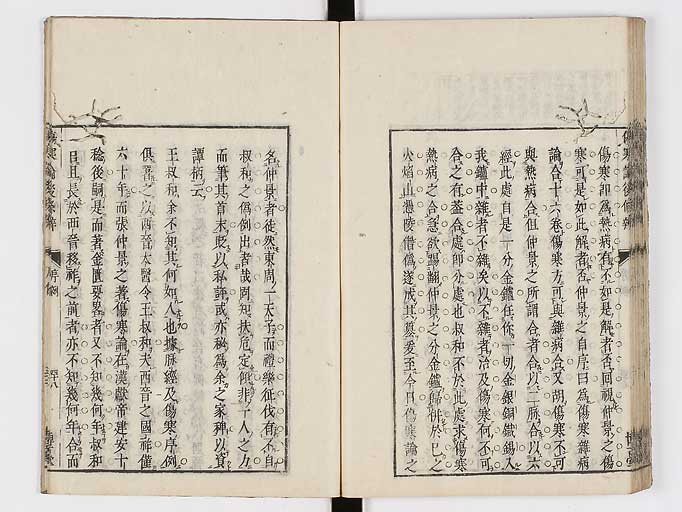 傷寒卽爲熱病有不如是解者否回視仲景之傷
寒可是如此解者否仲景之自序曰爲傷寒雜病
論合十六卷傷寒方可與雜病合又胡傷寒不可
與熱病合但仲景之所謂合者合以二脉合以六
經此處自是一分金鑪任你一切金銀銅鐵錫入
我鑪中雜者不雜矣以不雜者治及傷寒何不可
合之有葢合處卽分處也叔和不於此處求傷寒
熱病之合急欲踢翻仲景之分金鑪歸併於己之
火焰山憑陵僣僞遂成其簒爰至今日傷寒論之
名仲景者徒然東周一天子而禮樂征伐有不自
叔和之僞例出者哉罔知扶危定傾非一人之力
而筆其首末貶以私評或亦秘爲余之家種以資
譚柄云
王叔和余不知其何如人也據脉經及傷寒序例
俱署之以西晉太醫令王叔和夫西晉之國祚僅
六十年而張仲景之著傷寒論在漢獻帝建安十
稔後嗣是而著金匱要畧者又不知幾何年叔和
呂且長於西晉移祚之前者亦不知幾何年合而
序例